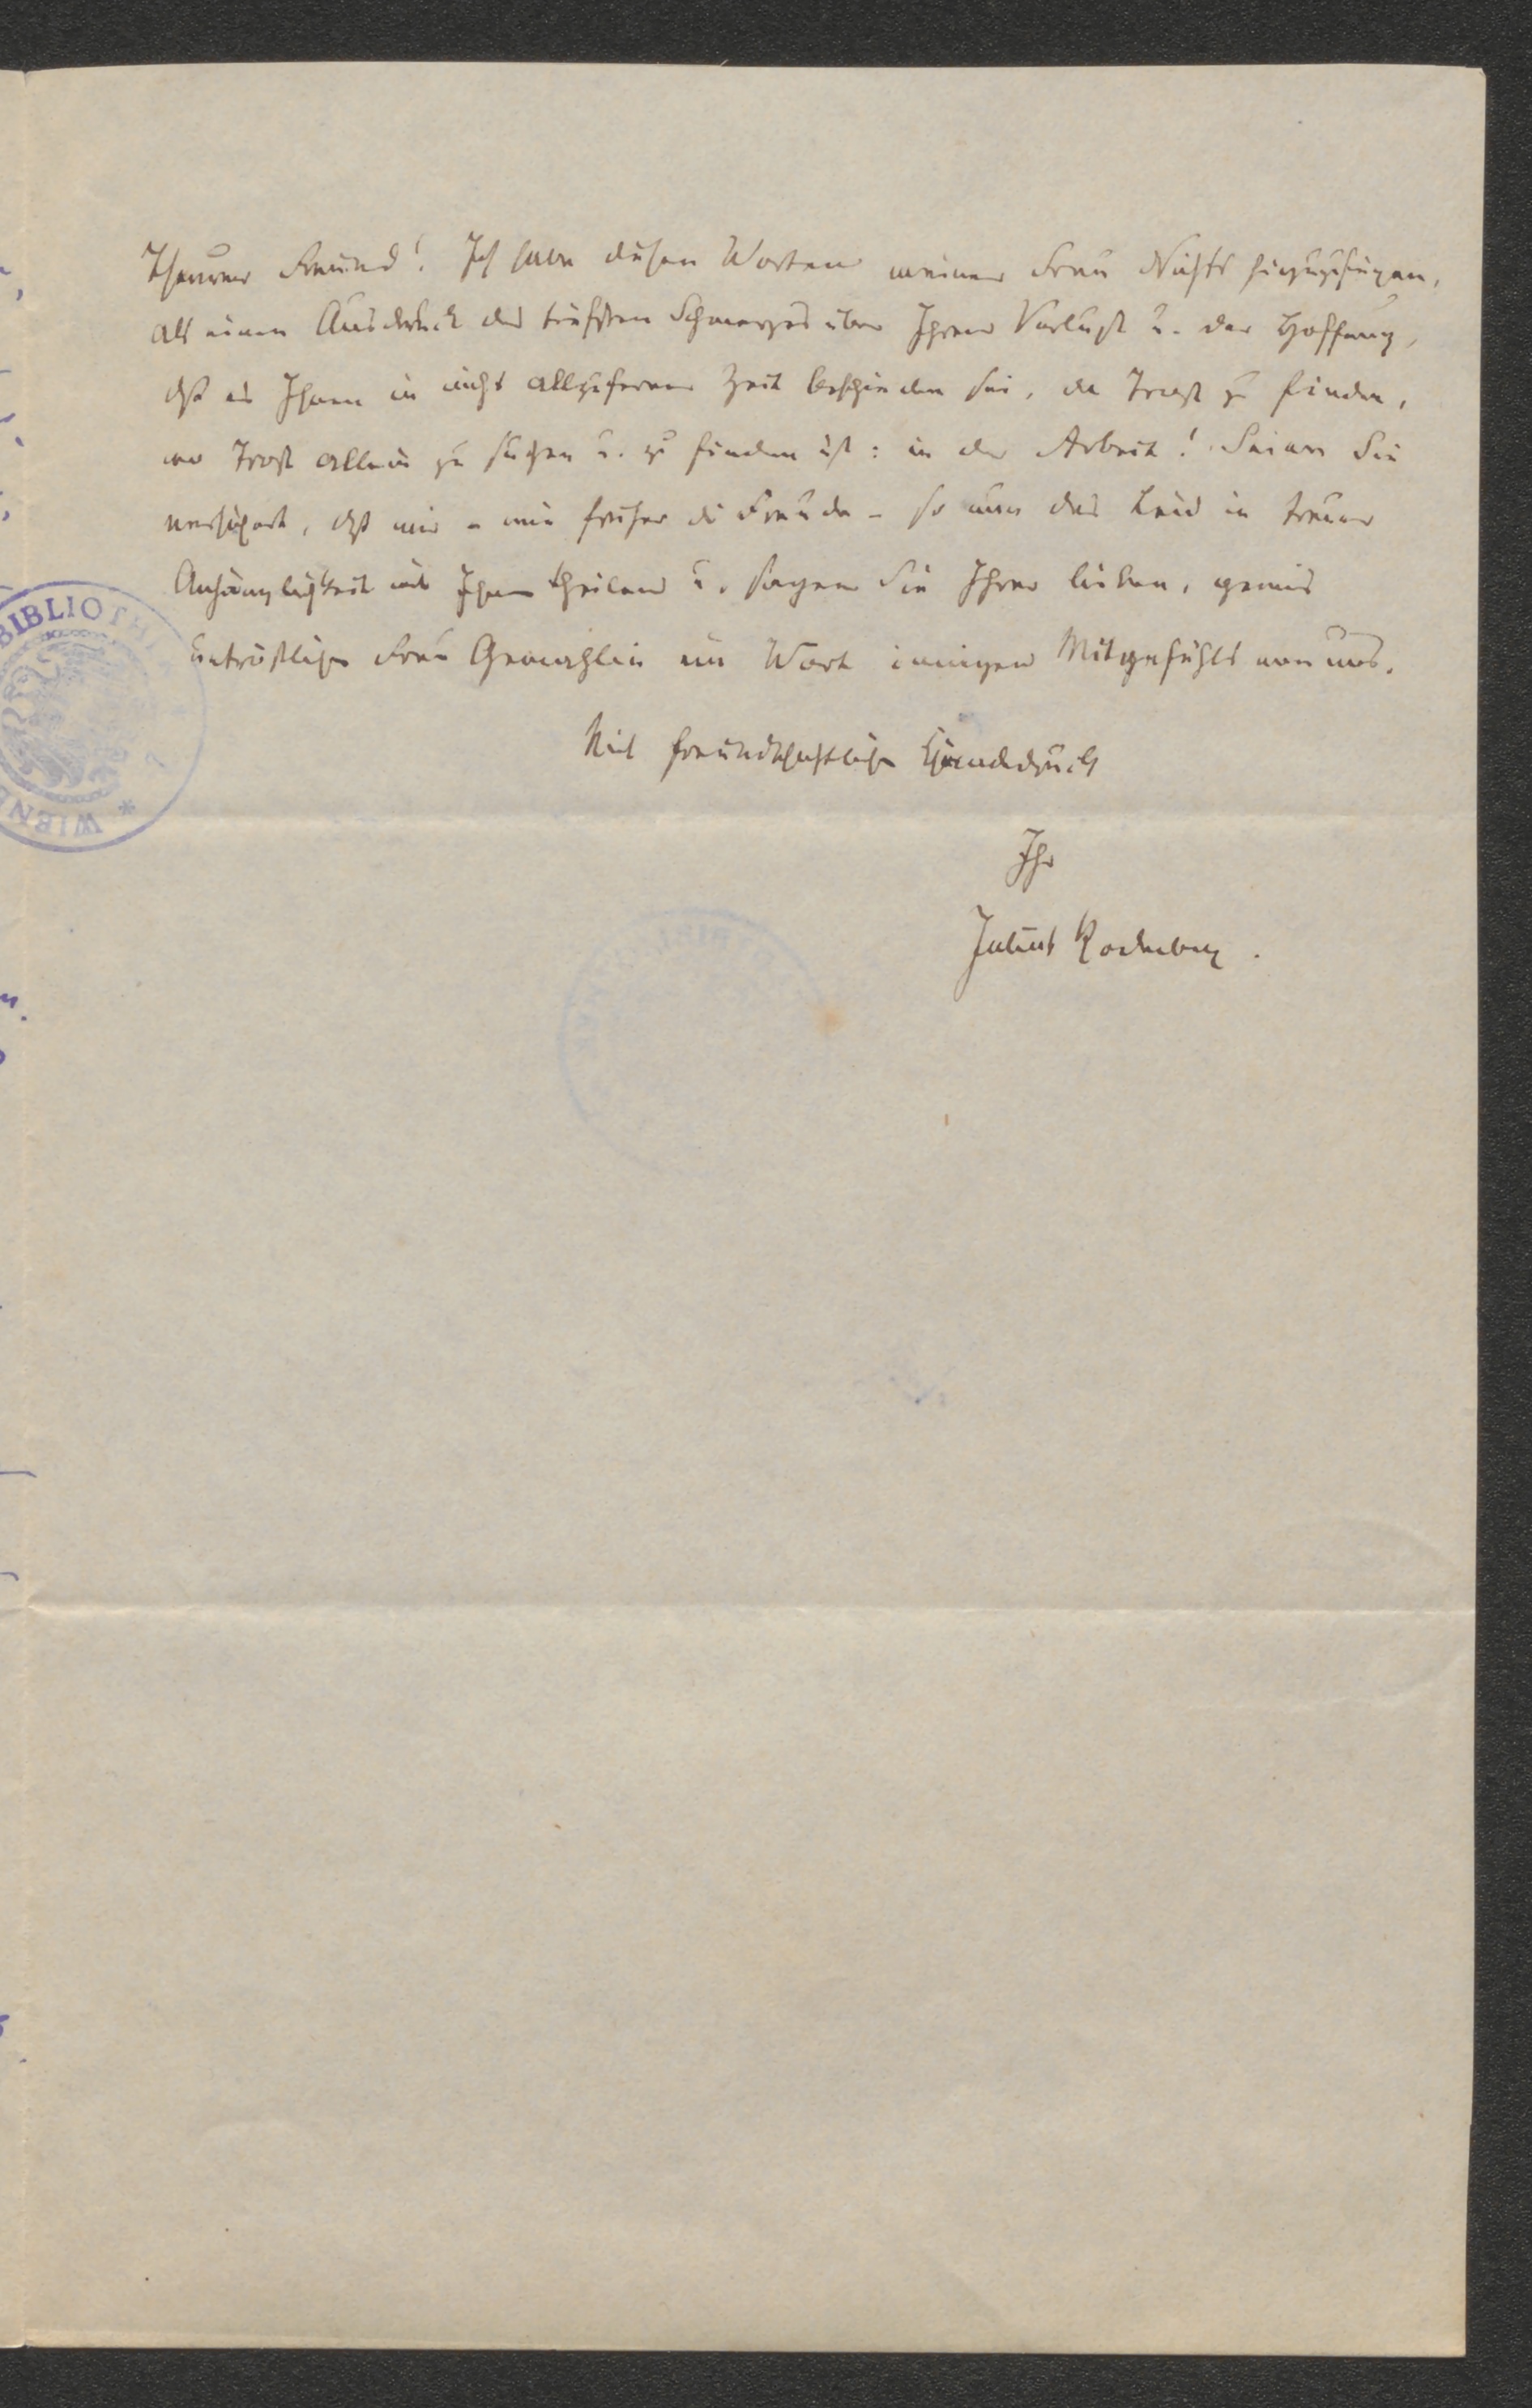 Theurer Freund! Ich habe diesen Worten meiner Frau Nichts hinzuzufügen,
als einen Ausdruck des tiefsten Schmerzes über Ihren Verlust u. der Hoffnung,
dß es Ihnen in nicht allzuferner Zeit beschieden sei, da Trost zu finden,
wo Trost allein zu suchen u. zu finden ist: in der Arbeit! Seien Sie
versichert, dß wir – wie früher die Freude – so nun das Leid in treuer
Anhänglichkeit mit Ihnen theilen u. sagen Sie Ihrer lieben, gewiß
untröstlichen Frau Gemahlin ein Wort innigen Mitgefühls von uns.
Mit freundschaftlichem Händedruck
Ihr
Julius Rodenberg.
BIBLIOTH
WIENE